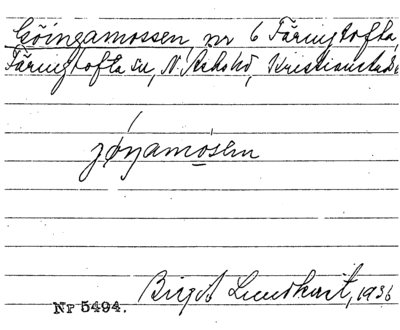 Göingamossen, nr 6 Färingtofta,
Färingtofta sn, N. Åsbo hd, Kristianstads
jøŋamosen
Nr 5494.
Birgit Lundkvist, 1936